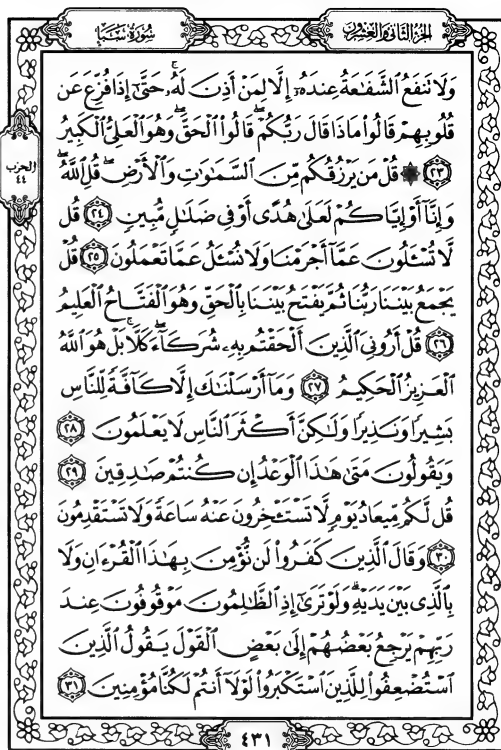 الجزء الثاني والعشرون
سورة سبإ
وَلَا تَنفَعُ الشَّفَاعَةُ عِندَهُ إِلَّا لِمَنْ أَذِنَ لَهُ حَتَّىٰ إِذَا فُزِّعَ عَن
قُلُوبِهِمْ قَالُوا مَاذَا قَالَ رَبُّكُمْ قَالُوا الْحَقَّ وَهُوَ الْعَلِيُّ الْكَبِيرُ
٢٣ ۞ قُلْ مَن يَرْزُقُكُم مِّنَ السَّمَاوَاتِ وَالْأَرْضِ قُلِ اللَّهُ
الحزب
٤٤
وَإِنَّا أَوْ إِيَّاكُمْ لَعَلَىٰ هُدًى أَوْ فِي ضَلَالٍ مُّبِينٍ ٢٤ قُل
لَّا تُسْأَلُونَ عَمَّا أَجْرَمْنَا وَلَا نُسْأَلُ عَمَّا تَعْمَلُونَ ٢٥ قُلْ
يَجْمَعُ بَيْنَنَا رَبُّنَا ثُمَّ يَفْتَحُ بَيْنَنَا بِالْحَقِّ وَهُوَ الْفَتَّاحُ الْعَلِيمُ
٢٦ قُلْ أَرُونِيَ الَّذِينَ أَلْحَقْتُم بِهِ شُرَكَاءَ كَلَّا بَلْ هُوَ اللَّهُ
الْعَزِيزُ الْحَكِيمُ ٢٧ وَمَا أَرْسَلْنَاكَ إِلَّا كَافَّةً لِّلنَّاسِ
بَشِيرًا وَنَذِيرًا وَلَٰكِنَّ أَكْثَرَ النَّاسِ لَا يَعْلَمُونَ ٢٨
وَيَقُولُونَ مَتَىٰ هَٰذَا الْوَعْدُ إِن كُنتُمْ صَادِقِينَ ٢٩
قُل لَّكُم مِّيعَادُ يَوْمٍ لَّا تَسْتَأْخِرُونَ عَنْهُ سَاعَةً وَلَا تَسْتَقْدِمُونَ
٣٠ وَقَالَ الَّذِينَ كَفَرُوا لَن نُّؤْمِنَ بِهَٰذَا الْقُرْءَانِ وَلَا
بِالَّذِي بَيْنَ يَدَيْهِ وَلَوْ تَرَىٰ إِذِ الظَّالِمُونَ مَوْقُوفُونَ عِندَ
رَبِّهِمْ يَرْجِعُ بَعْضُهُمْ إِلَىٰ بَعْضٍ الْقَوْلَ يَقُولُ الَّذِينَ
اسْتُضْعِفُوا لِلَّذِينَ اسْتَكْبَرُوا لَوْلَا أَنتُمْ لَكُنَّا مُؤْمِنِينَ ٣١
٤٣١